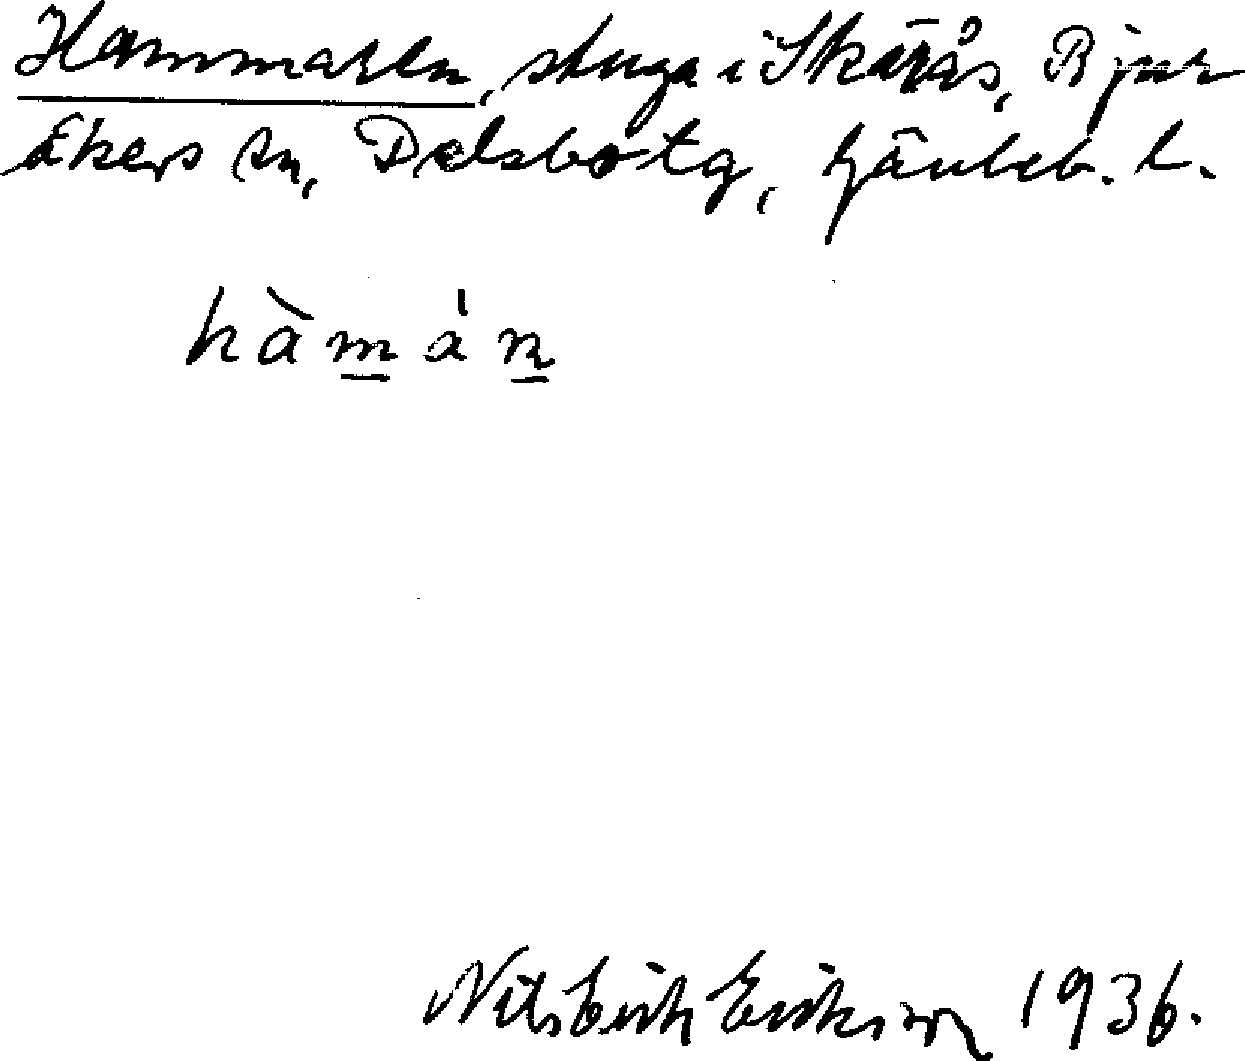 Hammaren, stuga i Skärås, Bjur
åkers sn, Delsbo tg, Gävleb. l.
hàmán
Nils Erik Eriksson 1936.